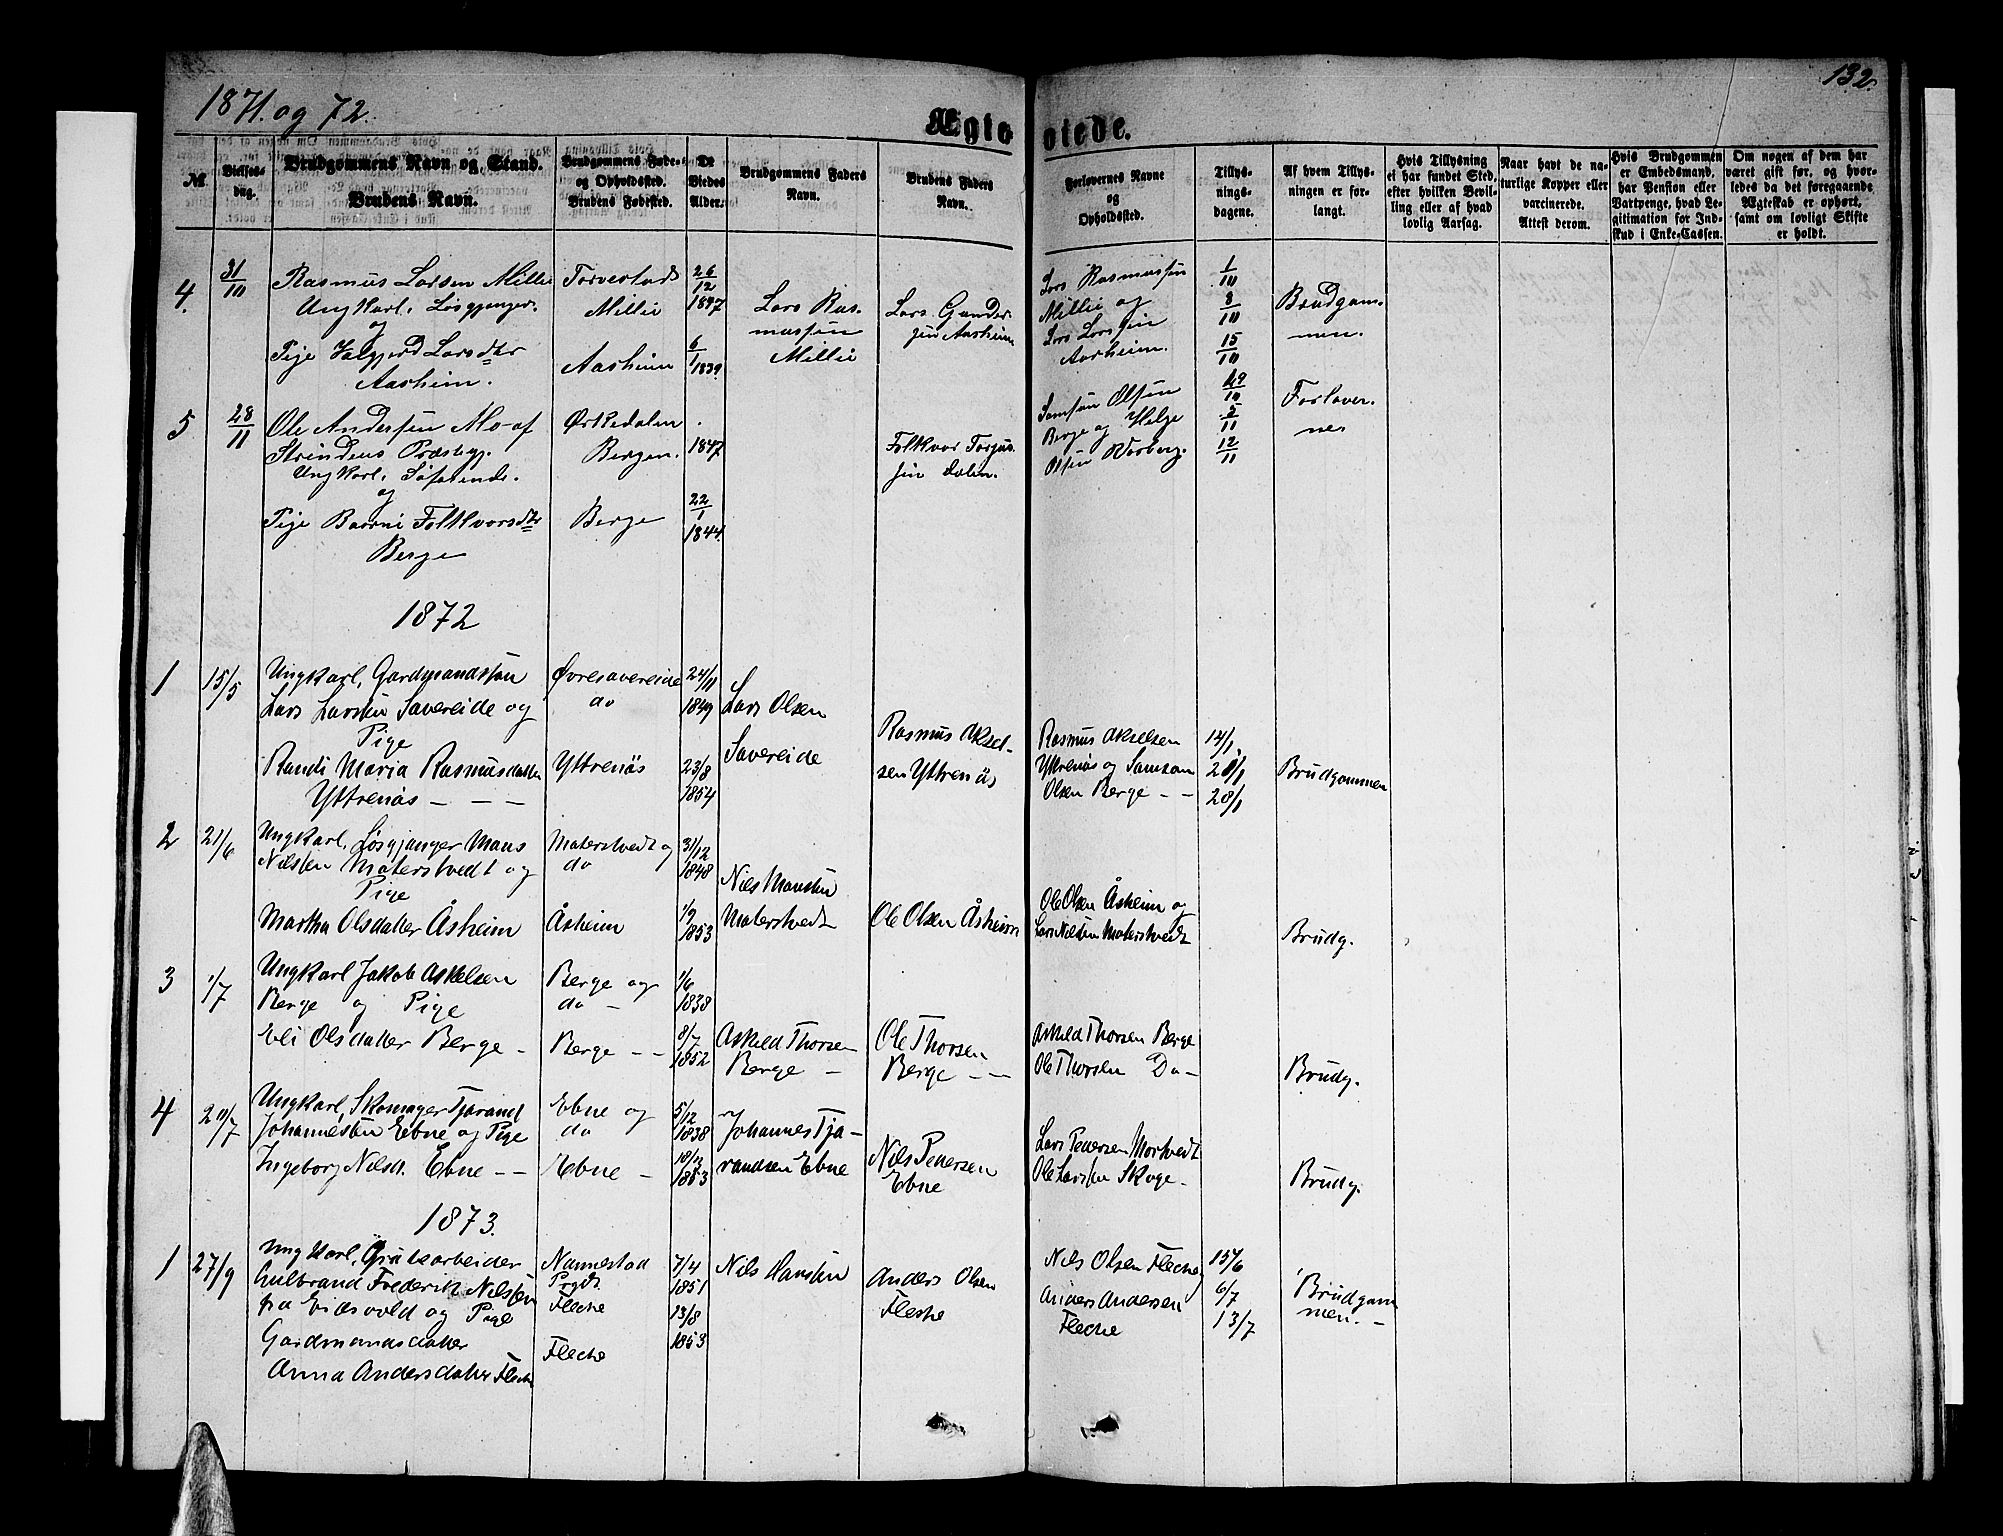 1871. og 72.
132.
Ægteviede.
№
Vielses-
dag.
Brudgommens Navn og Stand.
Brudens Navn.
Brudgommens Føde-
og Opholdssted.
Brudens Fødested.
De
Viedes
Alder.
Brudgommens Faders
Navn.
Brudens Faders
Navn.
Forlovernes Navne
og
Opholdssted.
Tillys-
nings-
dagene.
Af hvem Tillys-
ningen er for-
langt.
Hvis Tillysning
ei har fundet Sted,
efter hvilken Bevil-
ling eller af hvad
lovlig Aarsag.
Naar havt de na-
turlige Kopper eller
varcinerede.
Attest derom.
Hvis Brudgommen
er Embedsmand,
har Pension eller
Vartpenge, hvad Le-
gitimation for Ind-
skud i Enke-Cassen.
Om nogen af dem har
været gift før, og hvor-
ledes da det foregaaende
Ægteskab er ophørt,
samt om lovligt Skifte
er holdt.
4.
31/10
Rasmus Larsen Millie
Ungkarl, Løsgjænger.
og
Pige Valgjerd Larsdtr
Aasheim.
Torvestad
Millie
Aasheim
26/12
1847
6/1
1839.
Lars Ras-
mussen
Millie
Lars Gunder-
sen Aasheim
Lars Rasmussen
Millie og
Lars Larssen
Aasheim.
1/10
8/10
15/10
Brudgom-
men.
5
28/11
Ole Andersen Mo af
Strindens Præstegj.
Ungkarl, Søfarende.
og
Pige Baarni Folkvarsdtr
Berge
Ørkedalen
Bergen.
Berge
1847
22/1
1844.
Folkvar Torgus-
sen Dalen.
Samson Olsen
Berge og Helge
Olsen Warberg.
29/10
5/11
12/11
Forlover-
nes
1872
1
15/5
Ungkarl, Gardmandssøn
Lars Larsen Savereide og
Pige
Randi Maria Rasmusdatter
Yttrenäs – – –
Øvresavereide
do
Yttrenäs
24/11
1849
23/8
1854
Lars Olsen
Savereide
Rasmus Aksel-
sen Yttrenäs
Rasmus Akselsen
Yttrenäs og Samson
Olsen Berge – –
14/1.
21/1
28/1
Brudgommen
2
21/6
Ungkarl, Løsgjænger Mons
Nilssen Materstvedt og
Pige
Martha Olsdatter Åsheim
Materstvedt og
do
Åsheim
31/12
1848
1/9
1853
Nils Monsen
Materstvedt
Ole Olsen Åsheim
Ole Olsen Åsheim og
Lars Nilssen Materstvedt
Brudg.
3
1/7
Ungkarl Jakob Askelsen
Berge og Pige
Eli Olsdatter Berge –
Berge og
do –
Berge – –
1/6
1838
8/7
1852
Askeld Thorsen
Berge –
Ole Thorsen
Berge – –
Askeld Thorsen Berge
Ole Thorsen Do –
Brudg.
4
20/7
Ungkarl, Skomager Tjarand
Johannessen Ebne og Pige
Ingeborg Nilsd. Ebne – –
Ebne og
do
Ebne –
5/12
1838
10/12
1853
Johannes Tja-
randsen Ebne
Nils Pedersen
Ebne
Lars Pedersen Mortvedt
Ole Larssen Skoge –
Brudg.
1873.
1
27/9
Ungkarl, Grubearbeider
Gulbrand Frederik Nilssen
fra Eidsvold og Pige
Gardmandsdatter
Anna Andersdatter Fleche
Nannestad
Prgd.
Fleche
Fleche
7/4
1851
13/8
1853
Nils Hansen
Anders Olsen
Fleche
Nils Olsen Fleche
Anders Andersen
Fleche
15/6
6/7
13/7
Brudgom
men. –